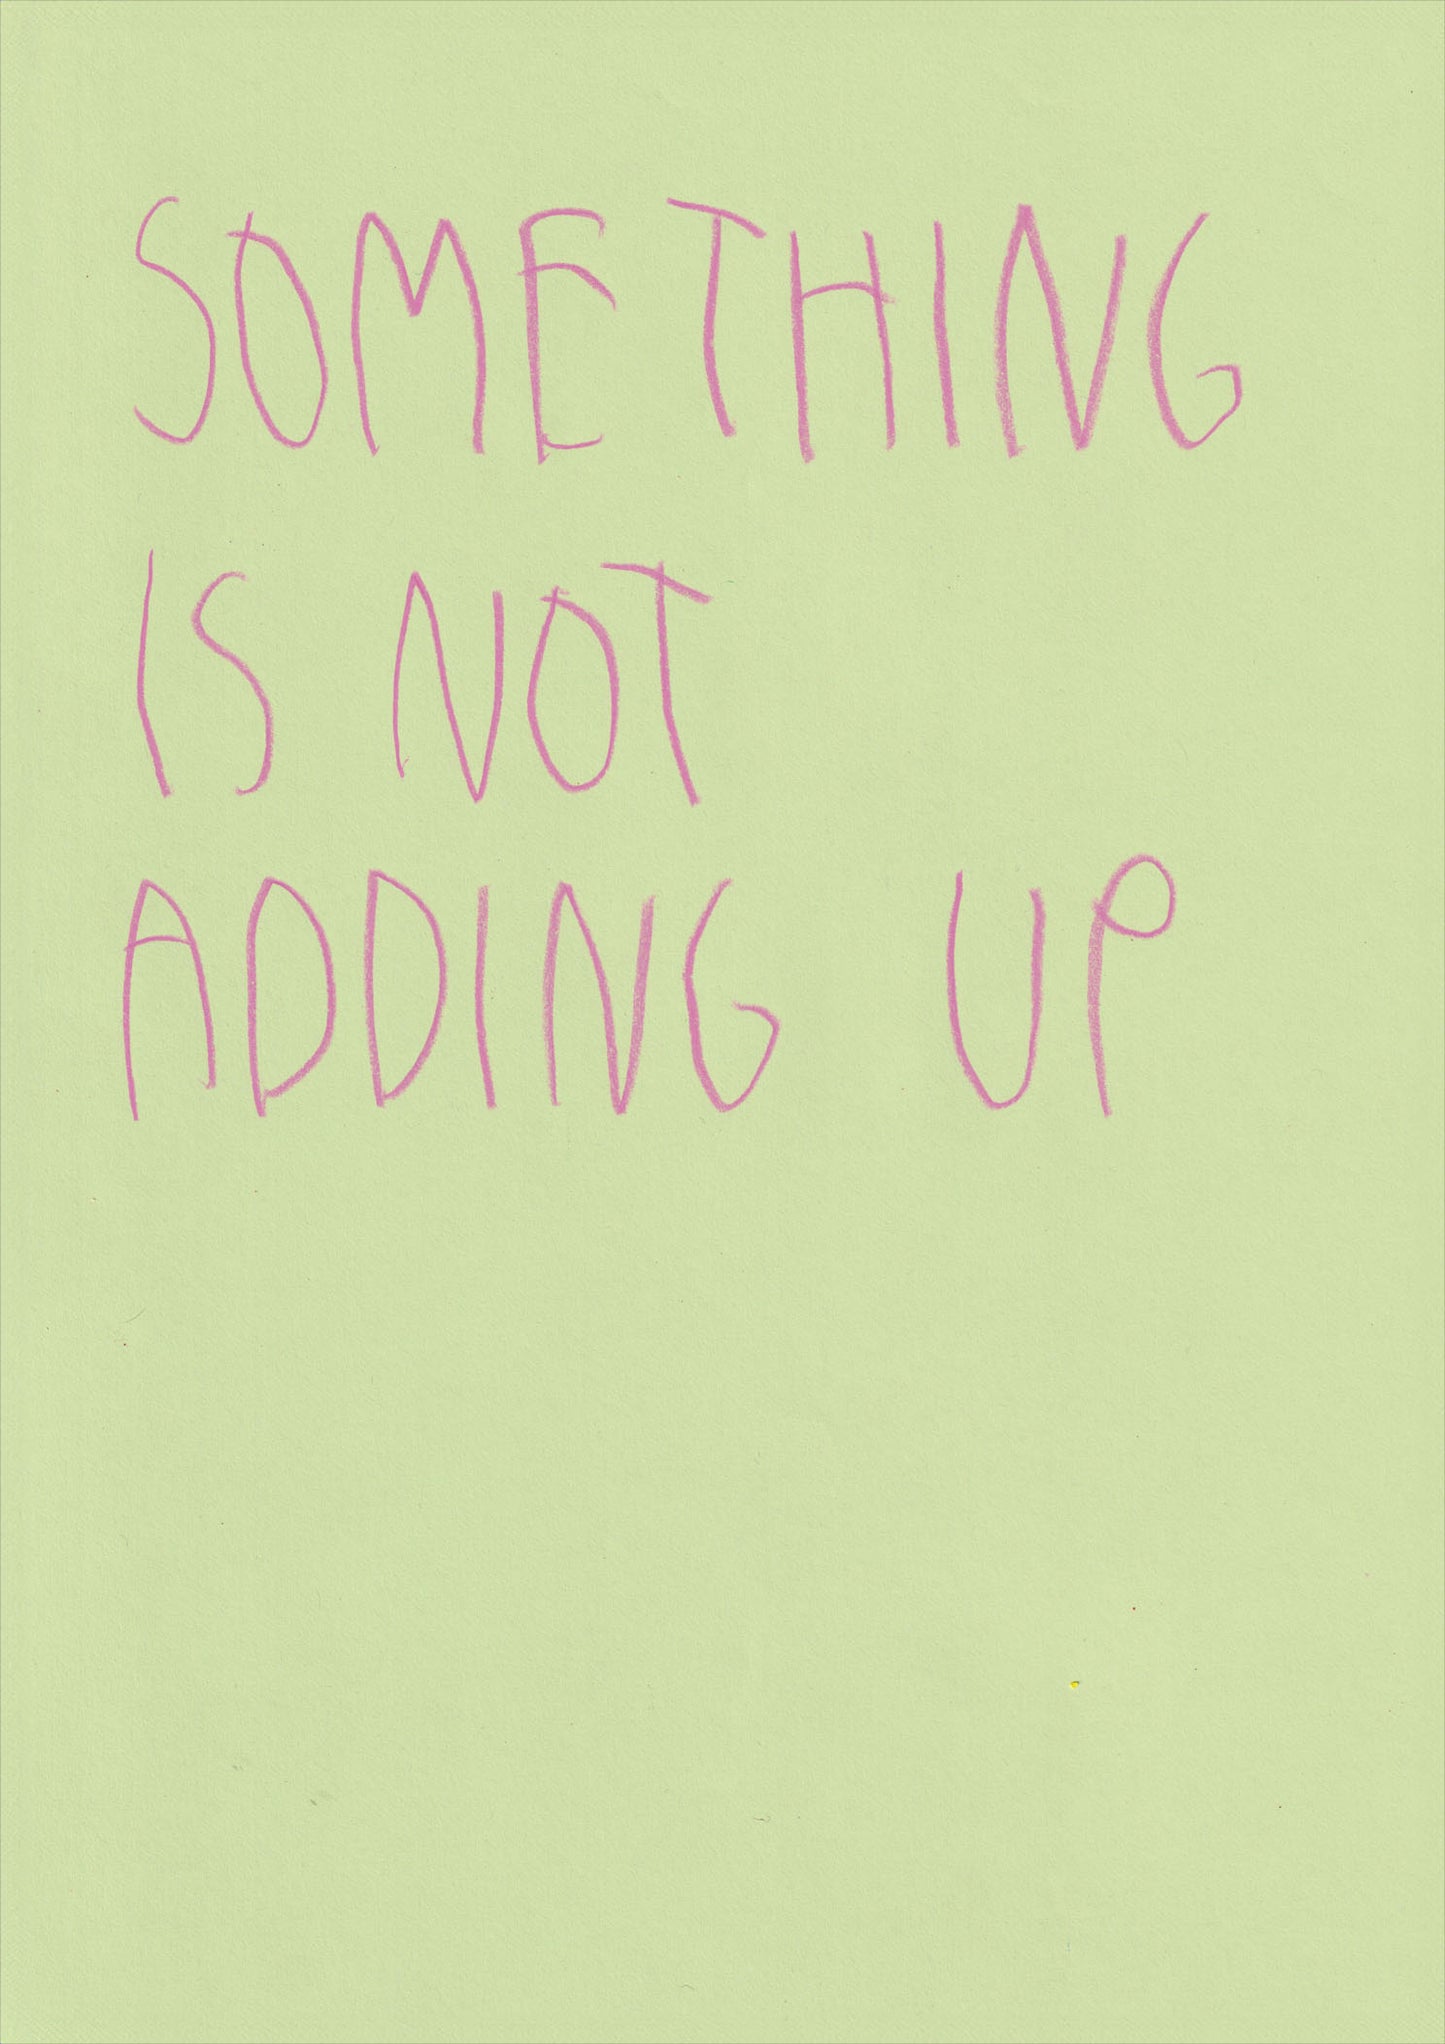 SOMETHING
IS NOT
ADDING UP